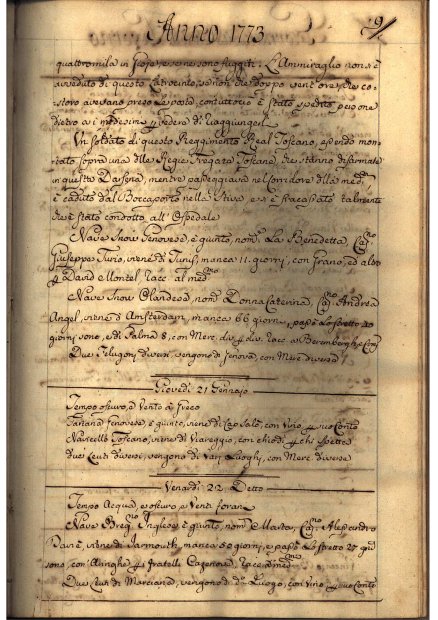 Anno 1773
9
quattromila in [...] e se ne sono fuggiti. L'Ammiraglio non s'è
avveduto di questo Latrocinio, se non che doppo vent'ore, che co-
storo avevano preso e porto, contuttociò è stato spedito persone
dietro a i medesimi p vedere di raggiungerli
Un soldato di questo Reggimento Real Toscano, essendo mon-
tato sopra una delle Regie Fregate Toscane, che stanno disarmate
in questa Darsena, mentre passeggiava nel Corridore della med.ma
è caduto dal Boccaporto nella Stiva, e si è fracassato talmente
che è stato condotto all'Ospedale
Nave Snow Genovese, è giunto, nom.ta La Benedetta, Cap.no
Giuseppe Turio, viene di Tunis, manca 11. giorni, con Grano, ed altro
p David e Montel, racc. al med.mo
Nave Snow Olandese, nom.ta Donna Caterina, Cap.no Andrea
Angel, viene d'Amsterdam, manca 66 giorni, passò Lo Stretto 20
giorni sono, e di Palma 8, con Merc. div. p div. racc. a Beremberghe e Comp
Due Felugoni diversi, vengono di Genova, con Merc. diverse
Giovedì 21 Gennajo
Tempo oscuro, e Vento a freco
Tartana Genovese, è giunto, viene di Cap Salò, con Vino p suo Conto
Navicello Toscano, viene di Viareggio, con chiodi p chi spetta
due Leuti diversi, vengono di varj Luoghi, con Merc. diverse
Venardì 22 Detto
Tempo Acqua, e oscuro, e Vento forano
Nave Breg.no Inglese è giunto, nom.ta Marta, Cap.no Alessandro
Davis, viene di Jarmouth, manca 50 giorni, e passò Lo Stretto 27 giorni
sono, con Aringhe p i Fratelli Cazenove, racc. a i med.mi
Due Leuti di Marciana, vengono di d.o Luogo, con Vino p suo Conto